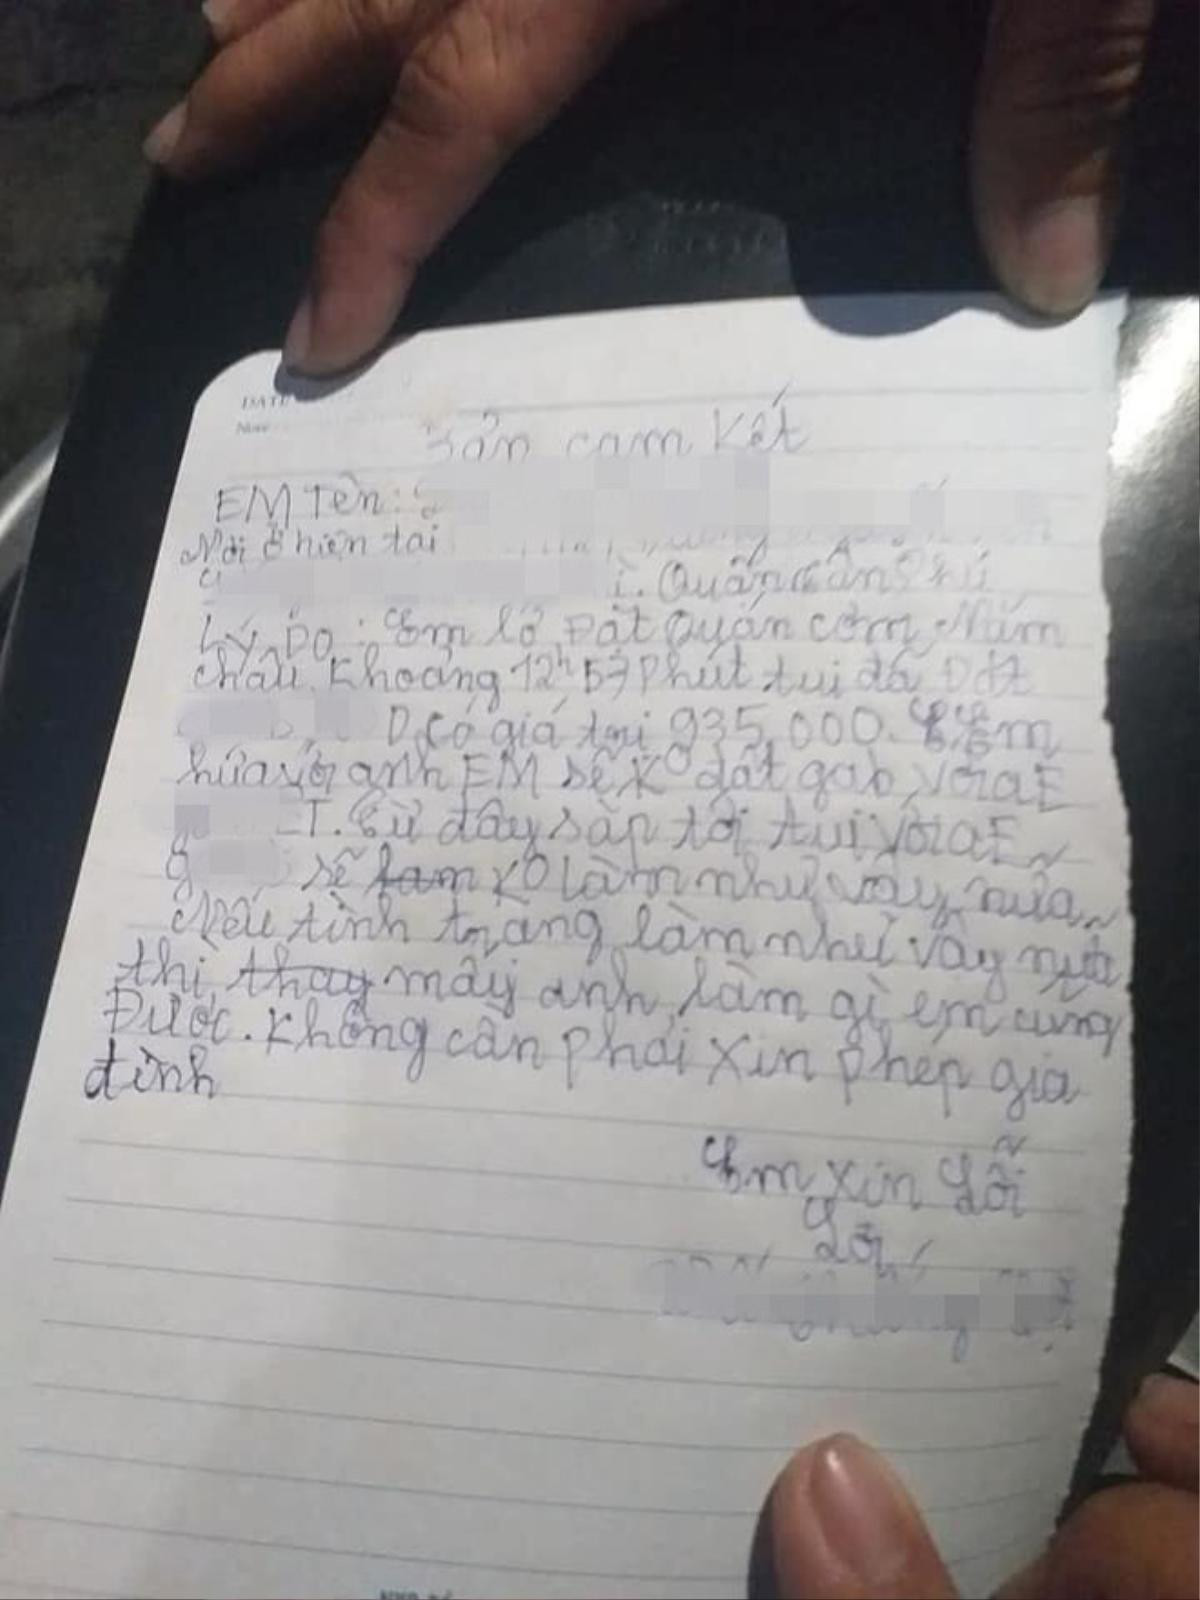 DATE
Bản cam kết
EM Tên:
Nơi ở hiện tại
Quận tân Phú
Lý Do: Em lỡ Đặt Quán cơm Năm
châu. Khoảng 12h 57 Phút tui đã Đặt
D. Có giá trị 935,000. Em
hứa với anh EM sẽ ko đặt gab với aE
T. Từ đây sắp tới tui với aE
g sẽ làm ko làm như vậy nữa
Nếu tình trạng làm như vậy nữa
thì thay mấy anh làm gì em cũng
Được. Không cần phải xin phép gia
đình
Em xin Lỗi